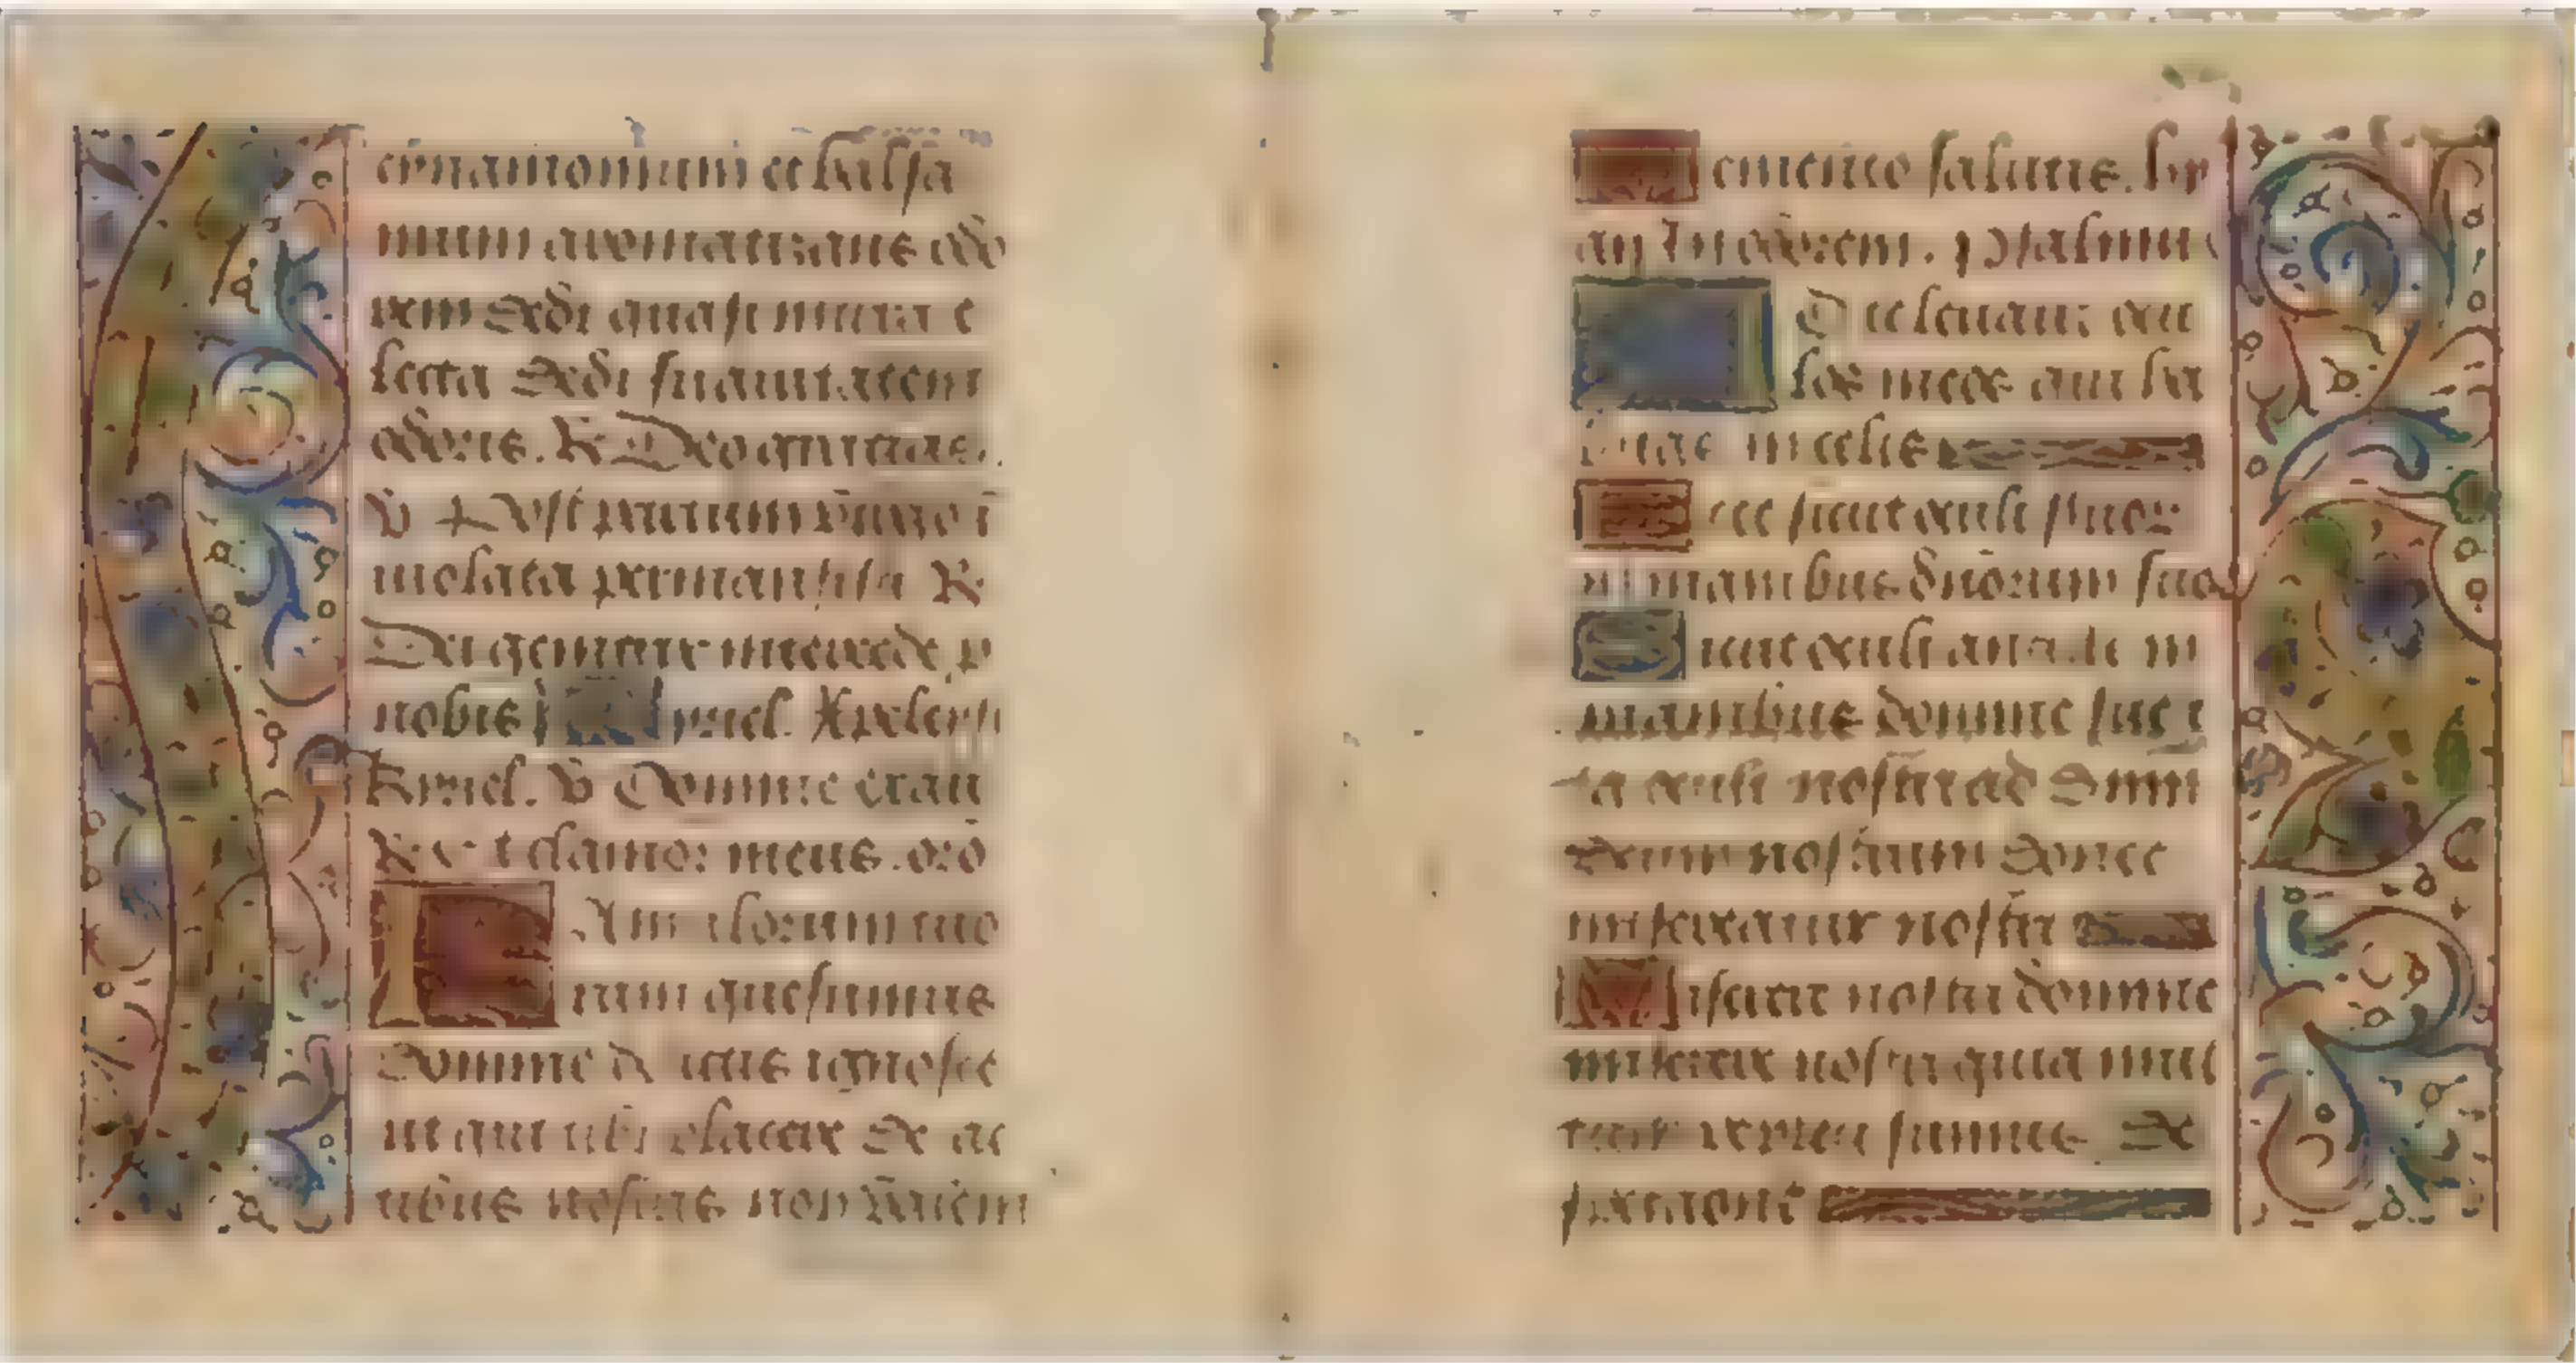 cinamomum et balsa
mum aromatizans odo
rem dedi quasi mirra e
lecta dedi suauitatem
odoris. R Deo gracias.
V Post partum virgo i
uiolata permansisti R
Dei genitrix intercede p
nobis Kyriel. Xpeleys
Kyriel. V Domine exau
R Et clamor meus. oro
FAmulorum tuo
rum quesumus
domine delictis ignosce
ut qui tibi placere de ac
tibus nostris non valem
conuertendo salutis.
an In odorem. psalmus
AD te leuaui ocu
los meos qui ha
bitas in celis
Ecce sicut oculi seruor
in manibus dnorum suor
Sicut oculi ancille in
manibus domine sue i
ta oculi nostri ad dnm
deum nostrum donec
misereatur nostri
Miserere nostri domine
miserere nostri quia mul
tum repleti sumus de